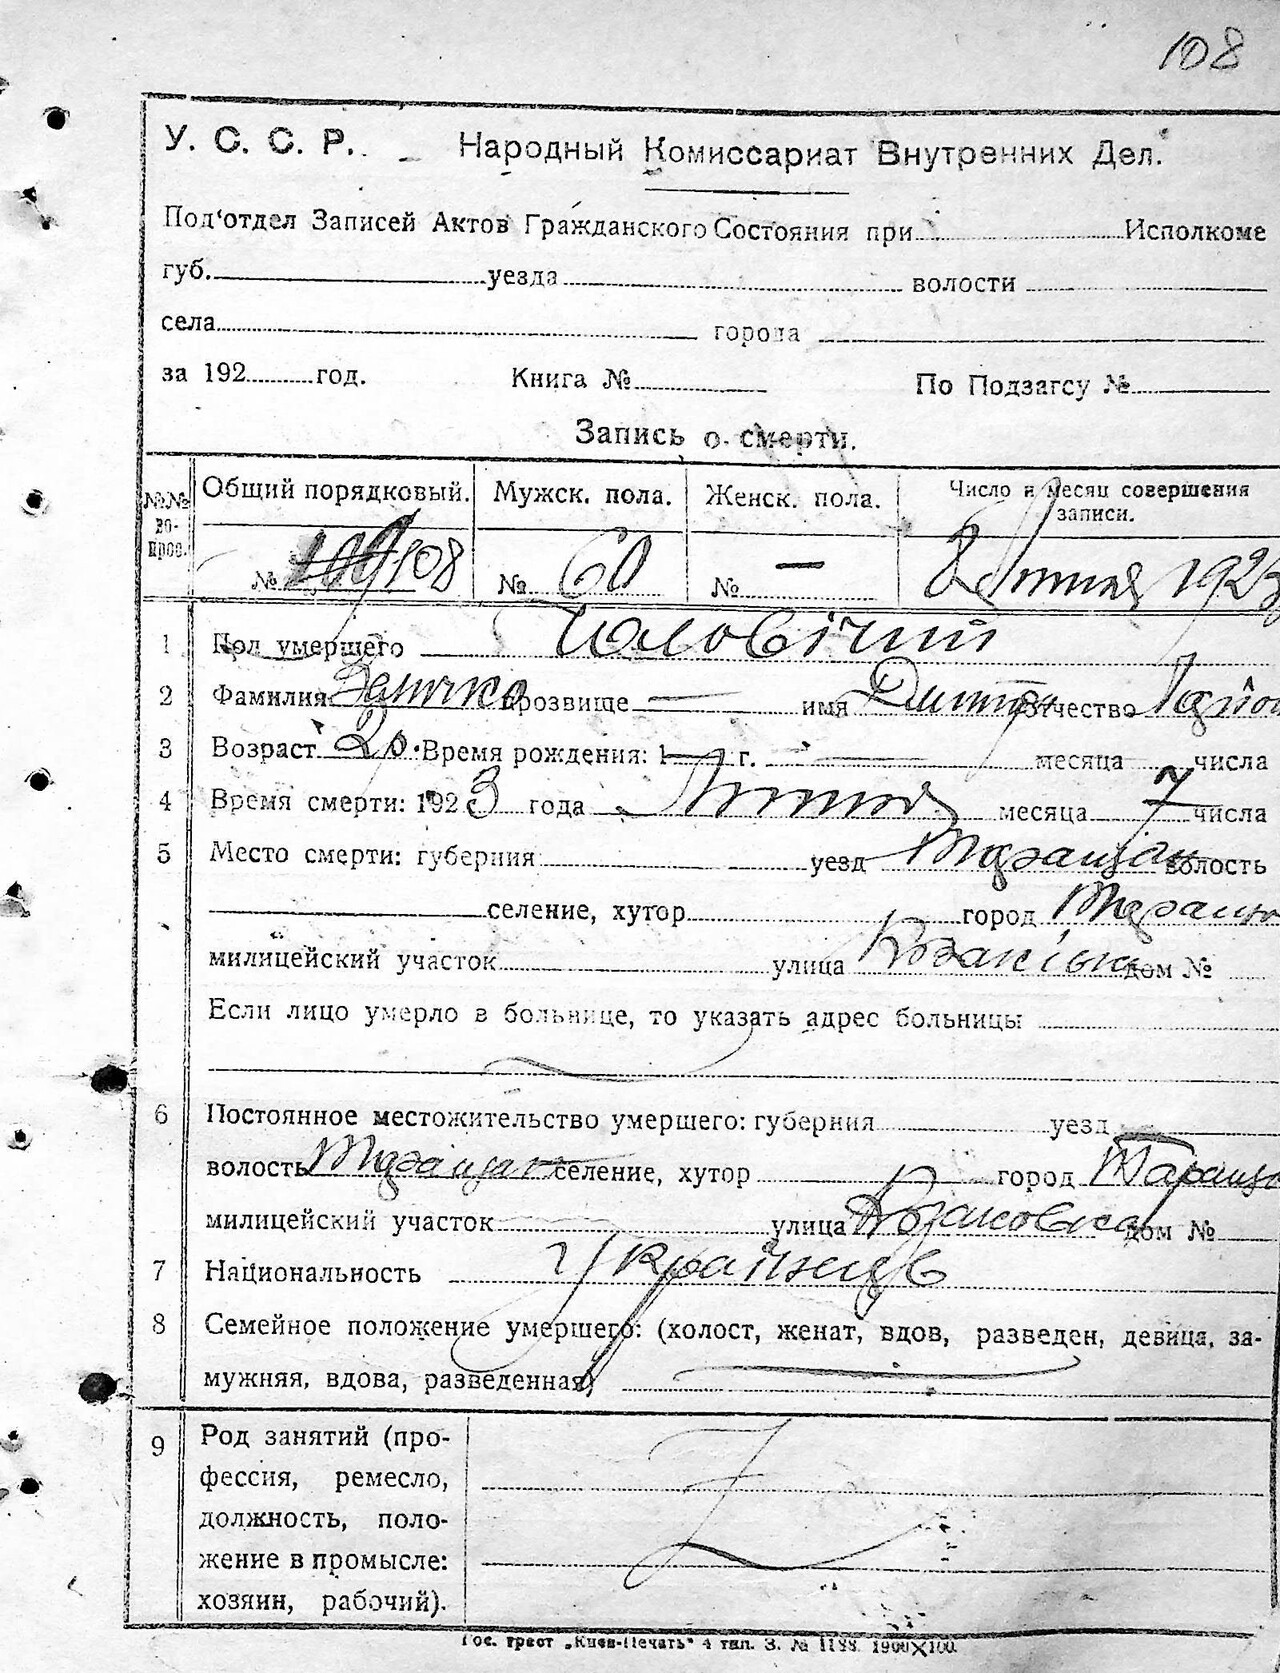 108
У. С. С. Р. Народный Комиссариат Внутренних Дел.
Под'отдел Записей Актов Гражданского Состояния при Исполкоме
губ. уезда волости
села города
за 192 год. Книга № По Подзагсу №
Запись о смерти.
№№ во- прос. Общий порядковый. Мужск. пола. Женск. пола. Число и месяц совершения записи.
№ 108 № 60 № — 8 Липня 1923
1 Пол умершего Чоловічий
2 Фамилия прозвище — имя Дмитро отчество
3 Возраст 2 р. Время рождения: 1 г. месяца числа
4 Время смерти: 1923 года Липня месяца 7 числа
5 Место смерти: губерния уезд Таращан волость
селение, хутор город Таращ
милицейский участок улица дом №
Если лицо умерло в больнице, то указать адрес больницы
6 Постоянное местожительство умершего: губерния уезд
волость Таращан селение, хутор город Таращ
милицейский участок улица Козаковка дом №
7 Национальность Українець
8 Семейное положение умершего: (холост, женат, вдов, разведен, девица, за-
мужняя, вдова, разведенная)
9 Род занятий (про-
фессия, ремесло,
должность, поло-
жение в промысле:
хозяин, рабочий).
Гос. трест „Киев-Печать" 4 тип. З. № 1188. 1900×100.